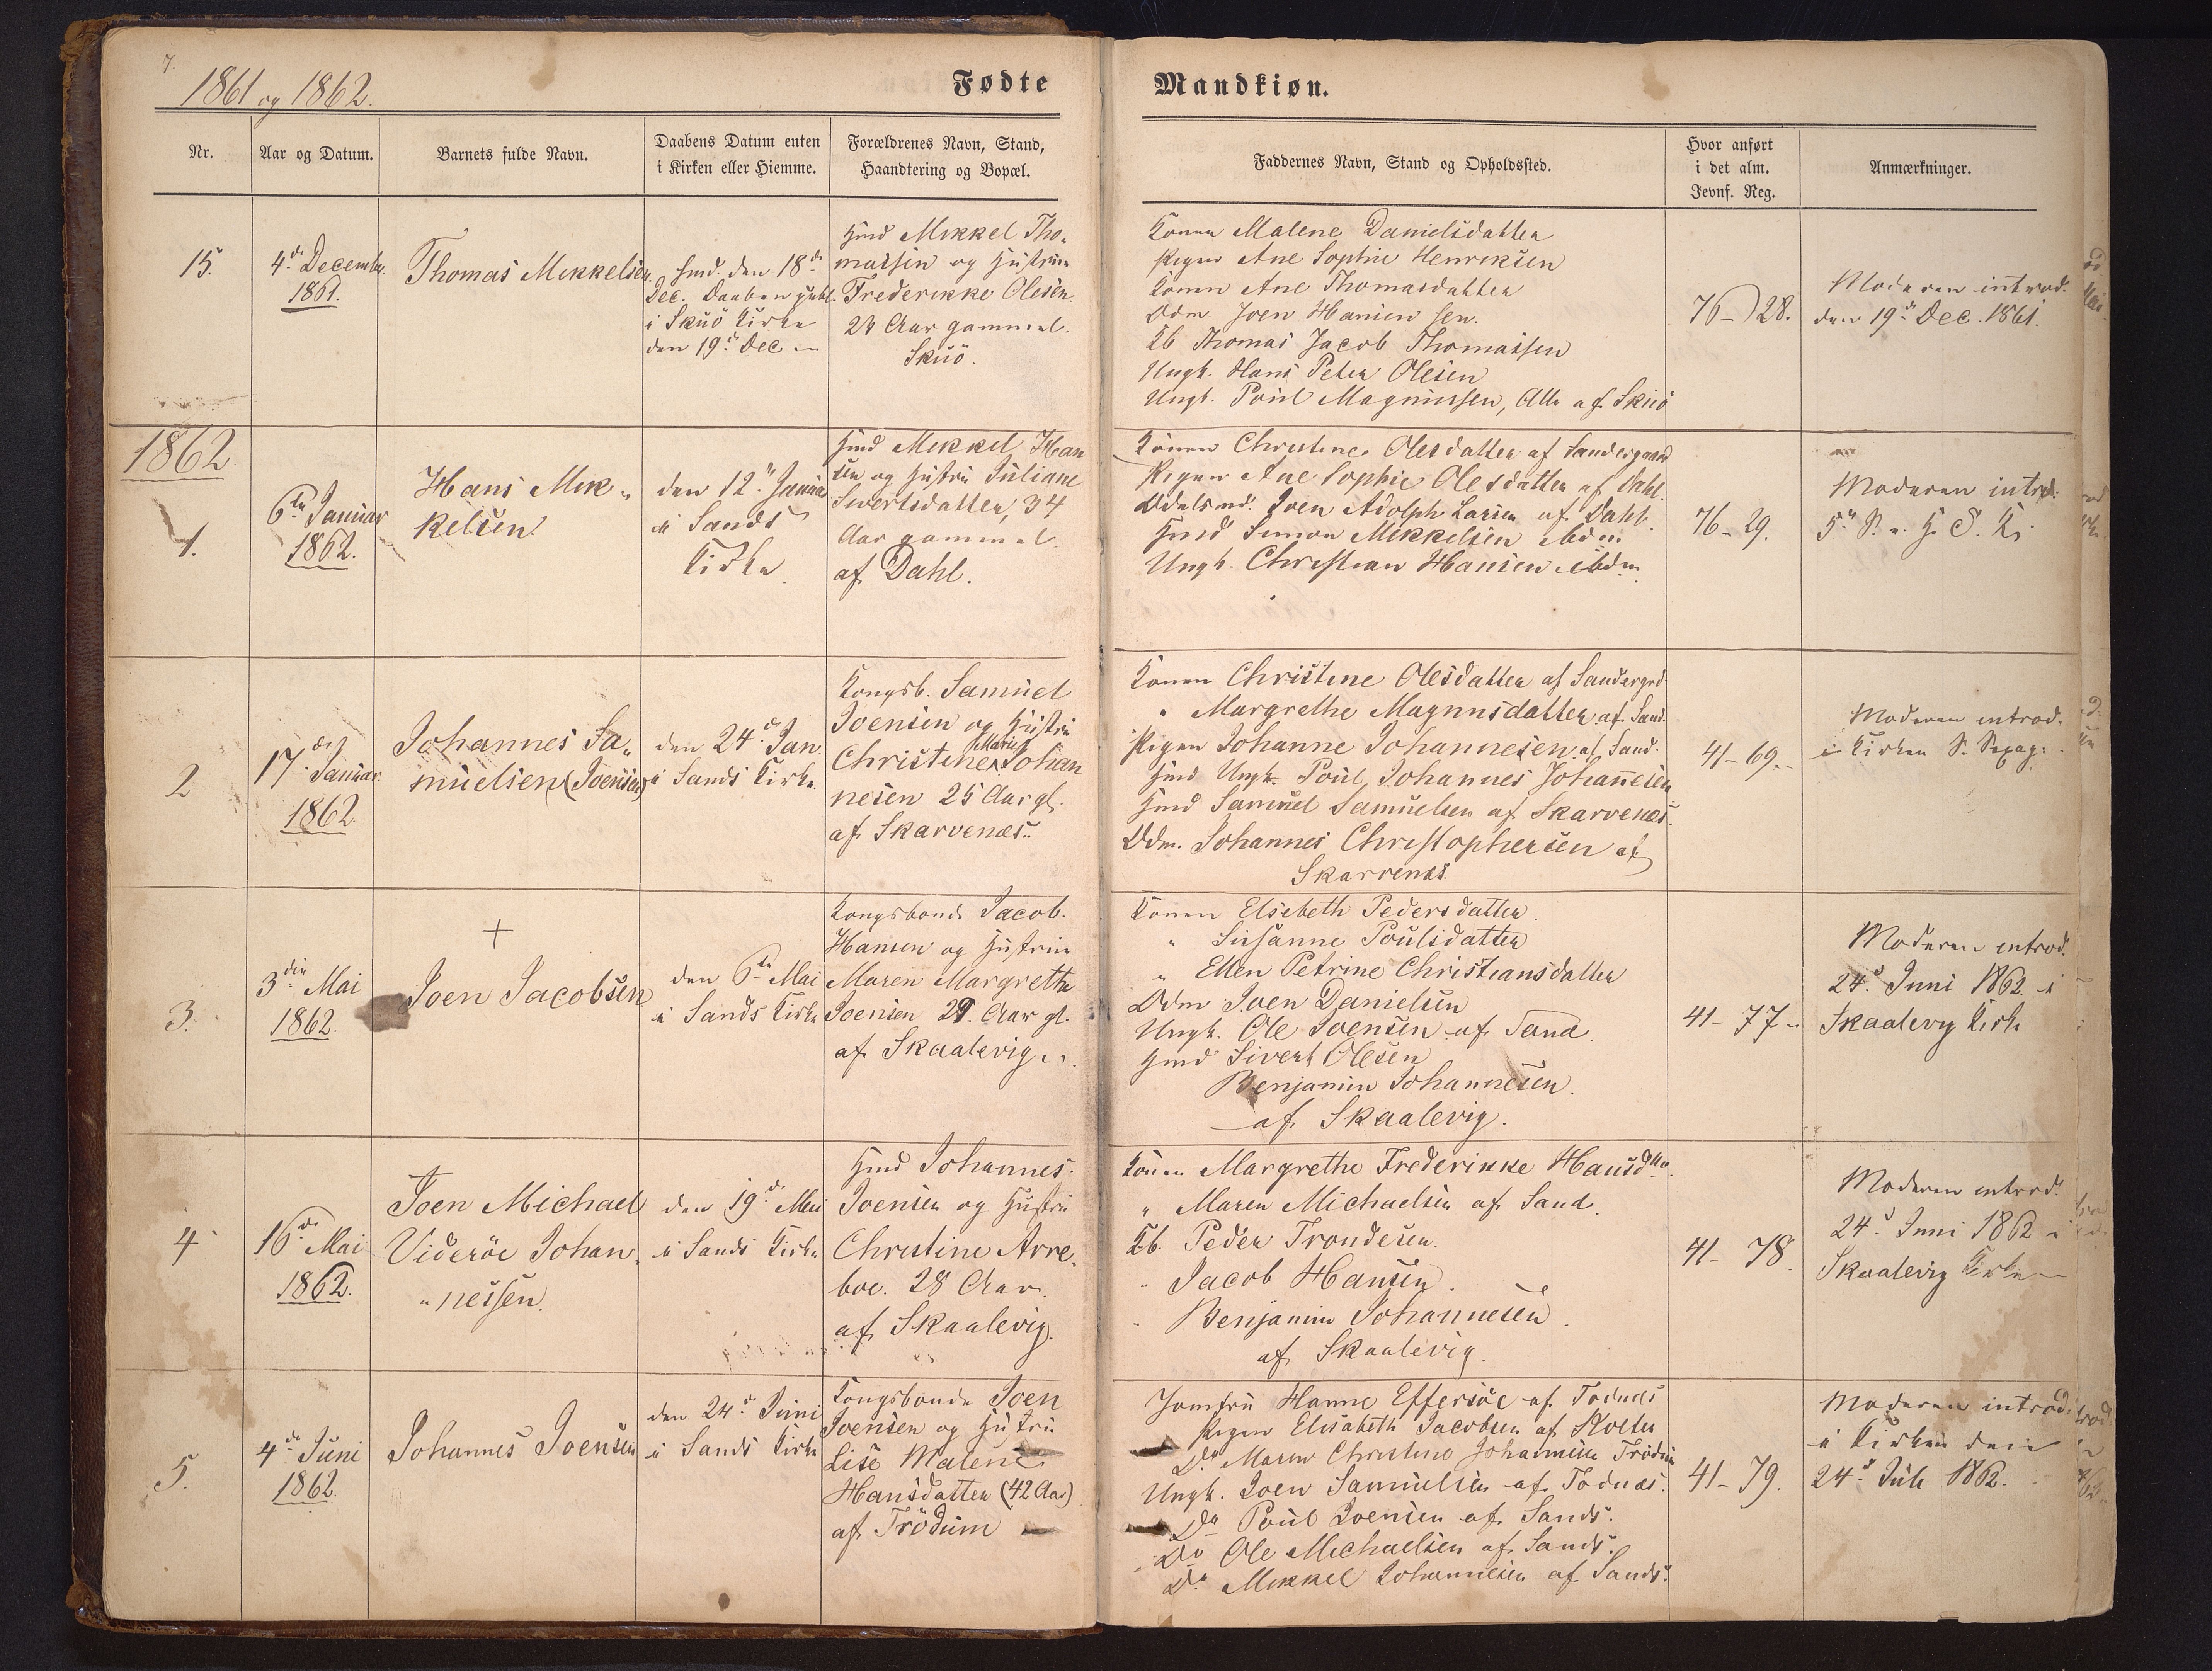 7.
1861 og 1862.
Fødte
Mandkiøn.
Nr.
Aar og Datum.
Barnets fulde Navn.
Daabens Datum enten
i Kirken eller Hiemme.
Forældrenes Navn, Stand,
Haandtering og Bopæl.
Faddernes Navn, Stand og Opholdssted.
Hvor anført
i det alm.
Jevnf. Reg.
Anmærkninger.
15.
4de December
1861.
Thomas Mikkelsen
hmd. den 18de
Dec. Daaben publ.
i Skuö Kirke
den 19de Dec
Hmd Mikkel Tho-
massen og Hustru
Frederikke Olesen
Aar gammel.
Skuö.
Konen Malene Danielsdatter
Pigen Ane Sophie Henriksen
Konen Ane Thomasdatter
Odm. Joen Hansen sen.
Kb Thomas Jacob Thomassen
Ungk. Hans Peter Olesen
Ungk. Poul Magnussen, Alle af Skuö
76-28.
Moderen introd.
den 19de Dec. 1861.
1862
1.
6te Januar
1862.
Hans Mik-
kelsen
den 12te Januar
i Sands
Kirke
Hmd Mikkel Han
sen og Hustru Juliane
Sivertsdatter, 34
Aar gammel
af Dahl.
Konen Christine Olesdatter af Sandergaard
Pigen Ane Sophie Olesdatter af Dahl.
Odelsmd. Joen Adolph Larsen af Dahl.
Hmd Simon Mikkelsen ibdm
Ungk. Christian Hansen ibdm
76-29.
Moderen introd.
2
17de Januar
1862.
Johannes Sa-
muelsen (Joensen)
den 24de Jan.
i Sands Kirke.
Kongsb. Samuel
Joensen og Hustru
Christine Marie Johan
nesen 25 Aar gl.
af Skarvenæs.
Konen Christine Olesdatter af Sandergrd
" Margrethe Magnusdatter af Sand.
Pigen Johanne Johannesen af Sand.
Hmd Ungk. Poul Johannes Johannesen
Hmd Samuel Samuelsen af Skarvenæs.
Odm. Johannes Christophersen af
Skarvenæs.
41-69.
Moderen introd.
i Kirken S. Sexag.
3.
3die Mai
1862.
+
Joen Jacobsen
den 6te Mai
i Sands Kirke
Kongsbonde Jacob
Hansen og Hustru
Maren Margretha
Joensen 29 Aar gl.
af Skaalevig.
Konen Elsebeth Pedersdatter.
" Susanne Poulsdatter
" Ellen Petrine Christiansdatter
Odm Joen Danielsen
Ungk. Ole Joensen af Sand.
Hmd Sivert Olesen
Benjamin Johannesen.
af Skaalevig.
41-77-
Moderen introd.
24de Juni 1862 i
Skaalevig Kirke
4
16de Mai
1862.
Joen Michael
Viderøe Johan-
nessen.
den 19de Mai
i Sands Kirke
Hmd Johannes
Joensen og Hustru
Christine Arre-
boe. 28 Aar.
af Skaalevig.
Konen Margrethe Frederikke Hansdtter.
" Maren Michaelsen af Sand.
Kb. Peder Trondesen.
" Jacob Hansen.
" Benjamin Johannesen.
af Skaalevig.
41-78.
Moderen introd.
24de Juni 1862 i
Skaalevig Kirke
5.
4de Juni
1862.
Johannes Joensen
den 24de Juni
i Sands Kirke
Kongsbonde Joen
Joensen og Hustru
Lise Malene
Hansdatter (42 Aar)
af Trödum
Jomfru Hanne Effersöe af Todnæs
Pigen Elisabeth Jacobsen af Skolen
Do Maren Christine Johannesen Trödum
Ungk. Joen Samuelsen af Todnæs.
Do Poul Joensen af Sands.
Do Ole Michaelsen af Sands.
Do Mikkel Johannesen af Sands.
41-79.
Moderen introd.
i Kirken den
24de Juli 1862.